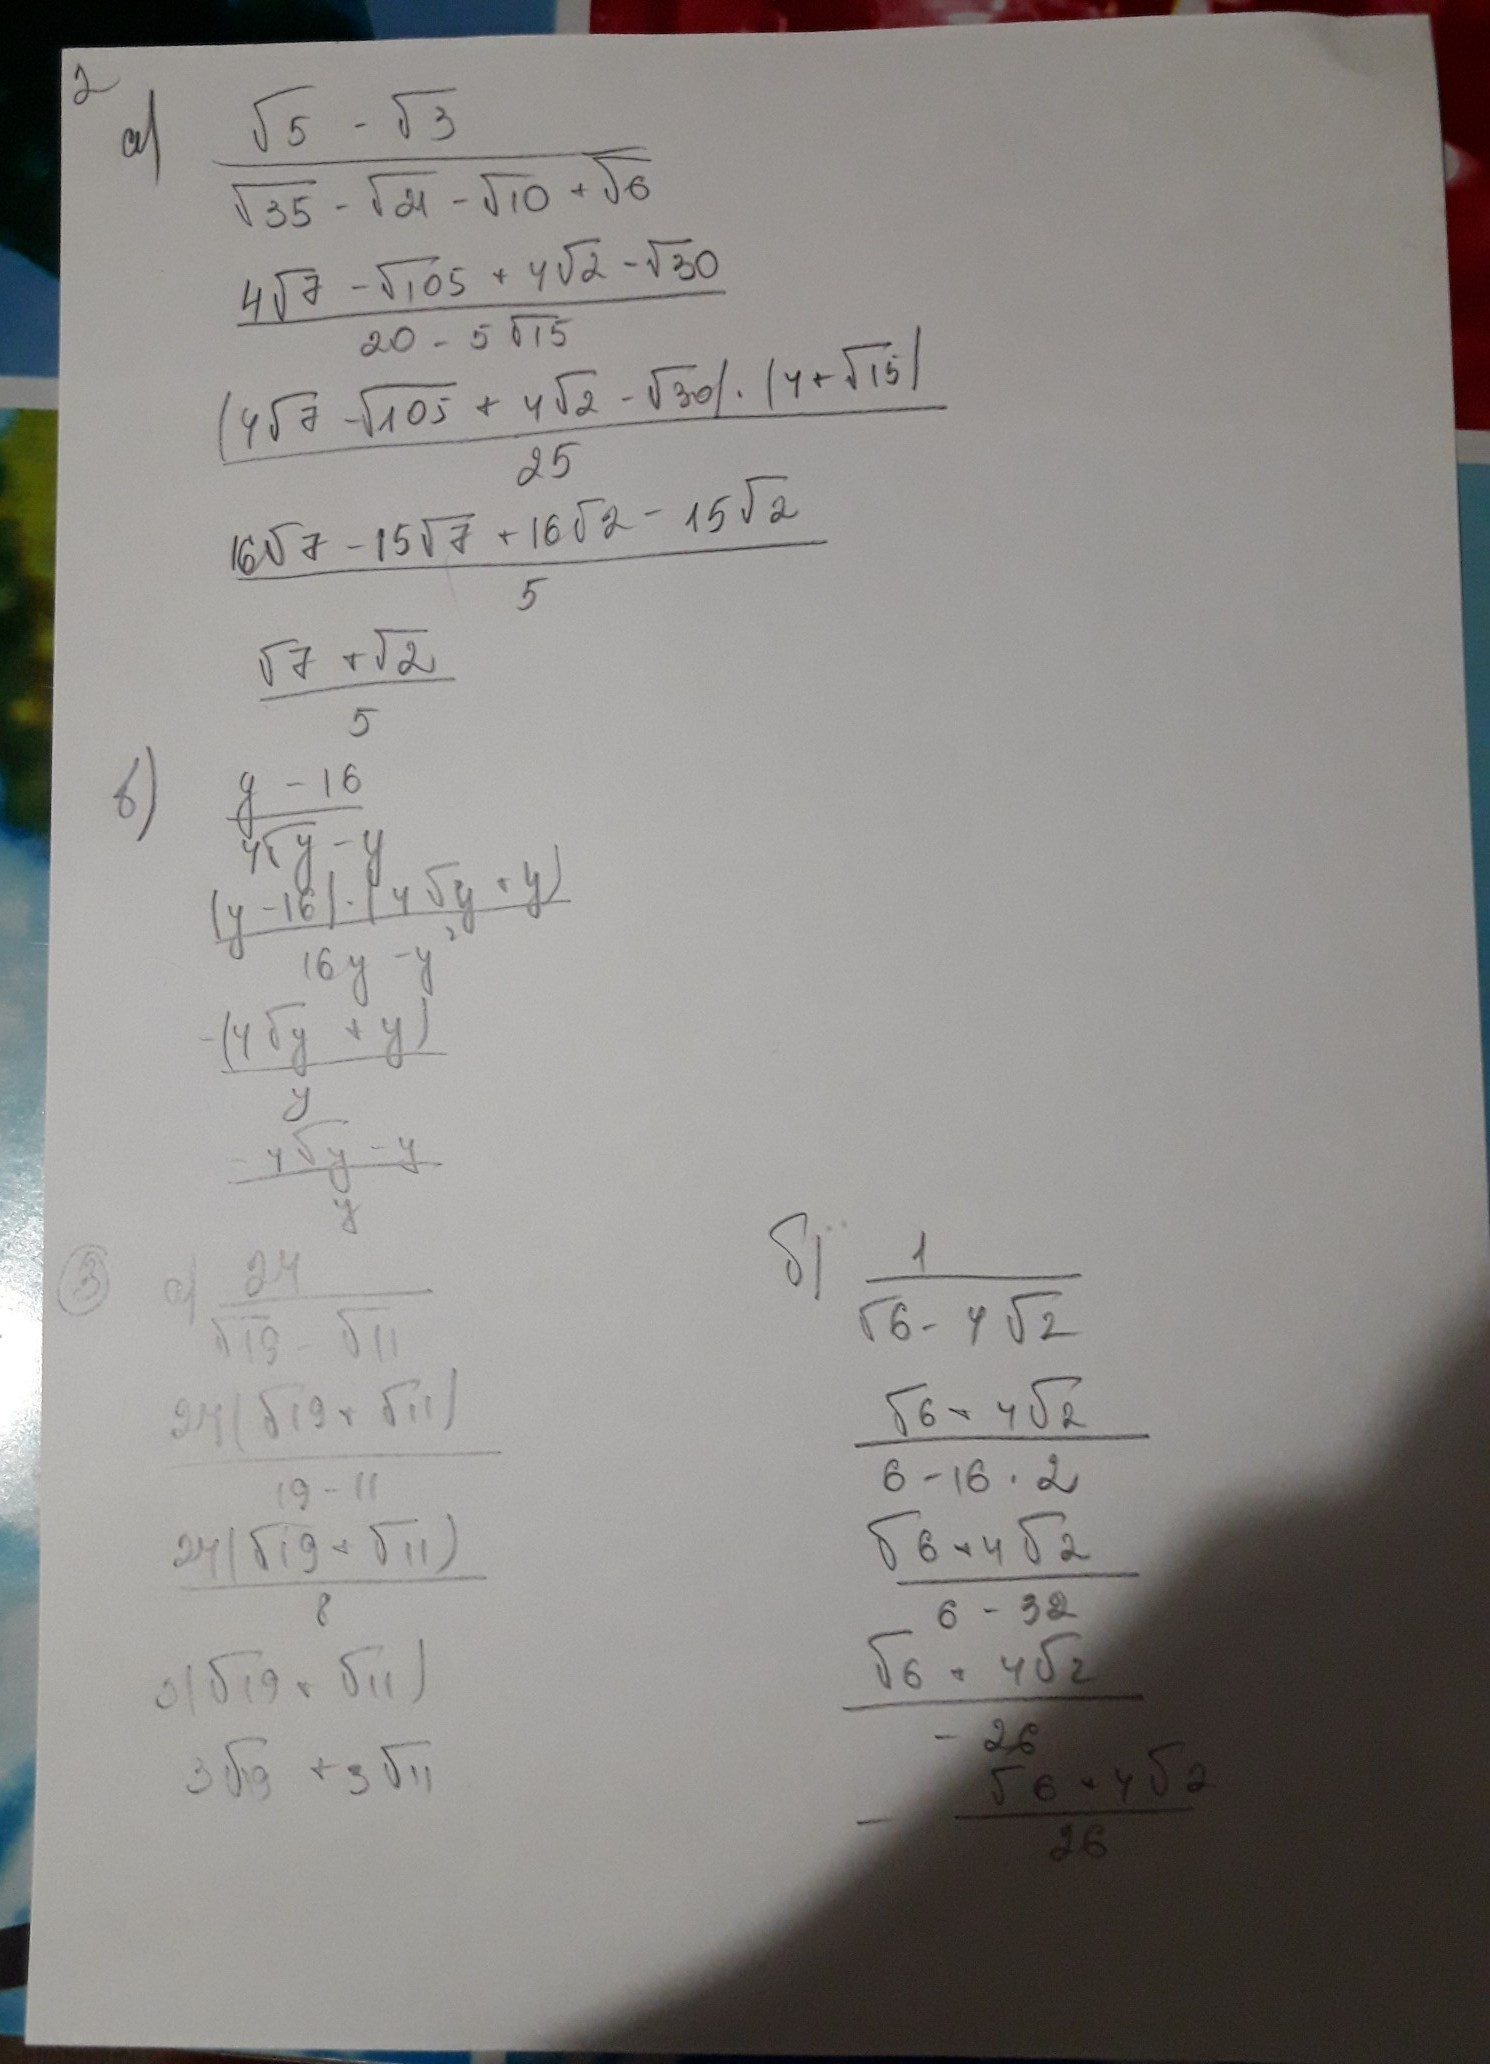 2
а) √5 - √3
√35 - √21 - √10 + √6
4√7 - √105 + 4√2 - √30
20 - 5√15
(4√7 - √105 + 4√2 - √30) · (4 + √15)
25
16√7 - 15√7 + 16√2 - 15√2
5
√7 + √2
5
б) y - 16
4√y - y
(y - 16) · (4√y + y)
16y - y²
-(4√y + y)
y
- 4√y - y
y
③ а) 24
√19 - √11
24(√19 + √11)
19 - 11
24(√19 + √11)
8
3(√19 + √11)
3√19 + 3√11
б) 1
√6 - 4√2
√6 + 4√2
6 - 16 · 2
√6 + 4√2
6 - 32
√6 + 4√2
- 26
- √6 + 4√2
26